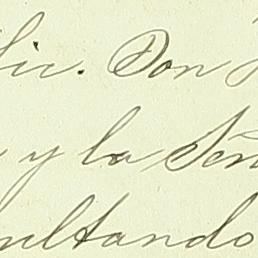 Lic. Don
y la Señ
ultando